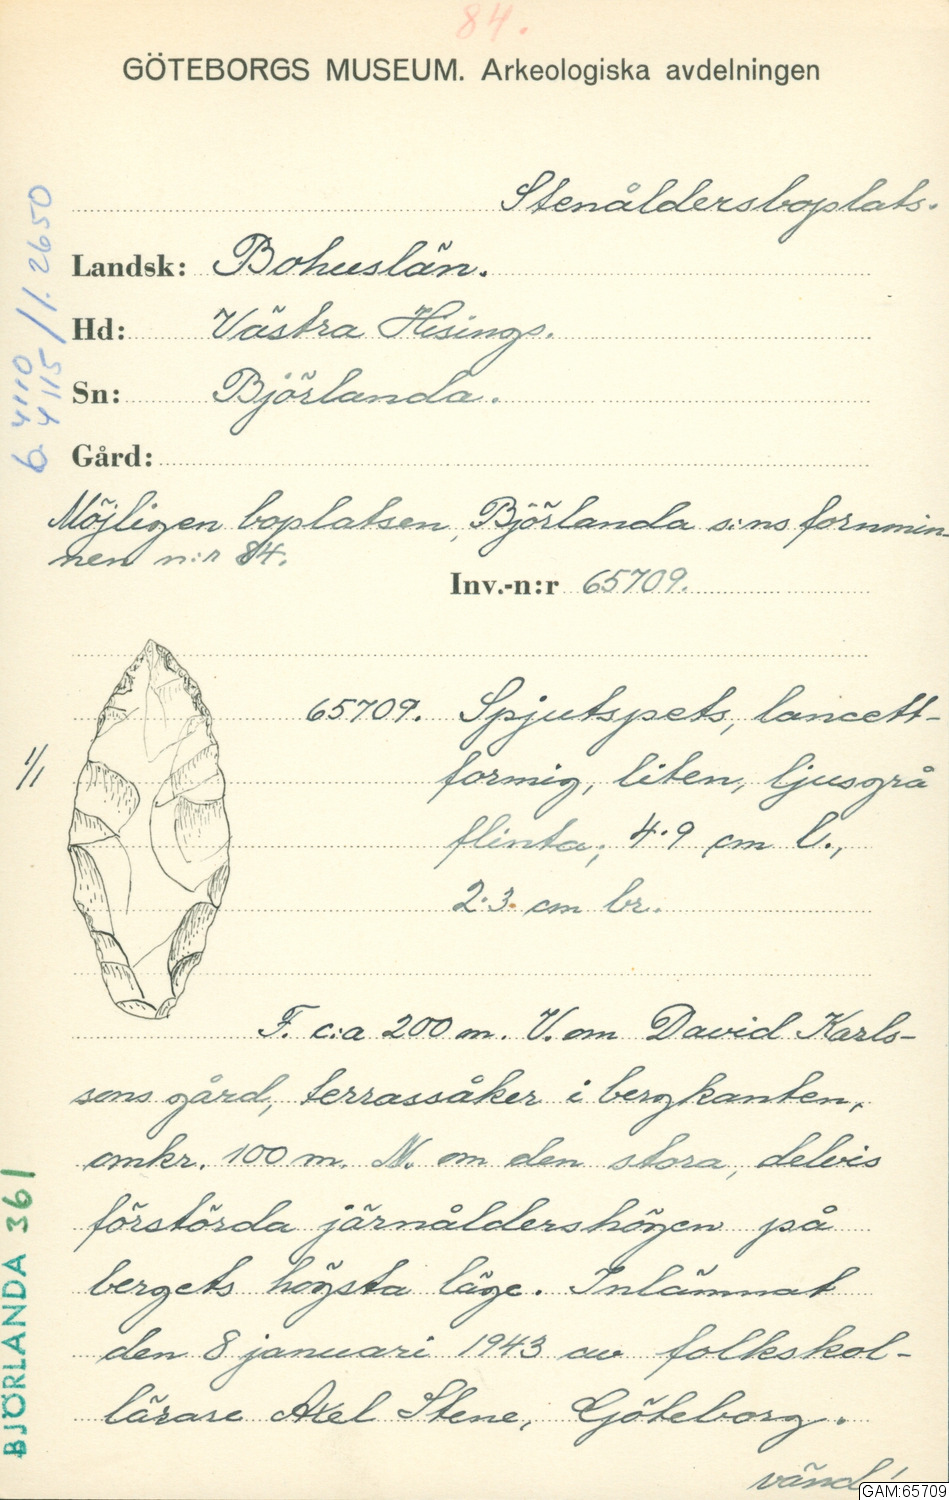 84.
GÖTEBORGS MUSEUM. Arkeologiska avdelningen
Stenåldersboplats.
Landsk: Bohuslän.
Hd: Västra Hisings.
Sn: Björlanda.
Gård:
Möjligen boplatsen, Björlanda s:ns fornmin-
nen n:r 84.
Inv.-n:r 65709.
65709. Spjutspets, lancett-
formig, liten, ljusgrå
flinta; 4.9 cm l.,
2.3 cm br.
1/1
F. c:a 200 m. V. om David Karls-
sons gård, terrassåker i bergkanten,
omkr. 100 m. N. om den stora, delvis
förstörda järnåldershögen på
bergets högsta läge. Inlämnat
den 8 januari 1943 av folkskol-
lärare Axel Stene, Göteborg.
vänd!
6. 4110
4115 / 1. 2650
BJÖRLANDA 361
GAM:65709